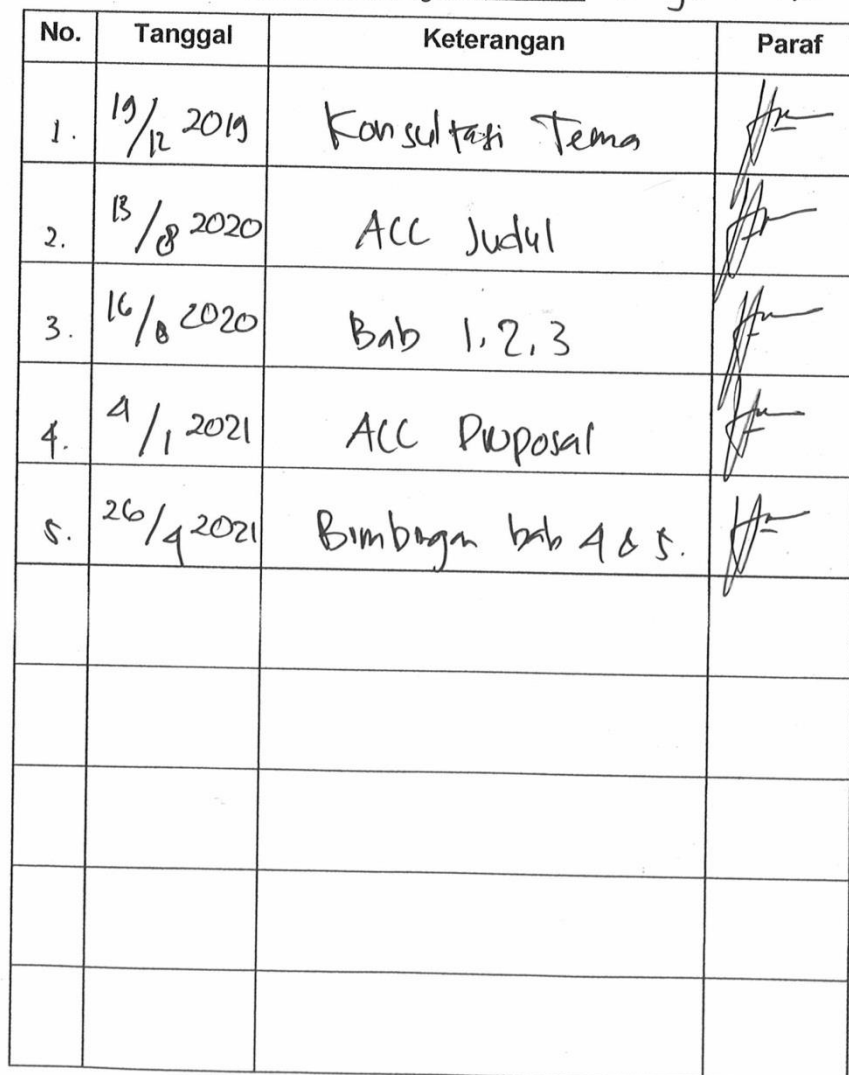 No. Tanggal Keterangan Paraf
1. 19/12 2019 Konsultasi Tema
2. 13/8 2020 ACC Judul
3. 16/8 2020 Bab 1, 2, 3
4. 4/1 2021 ACC Proposal
5. 26/4 2021 Bimbingan bab 4 & 5.